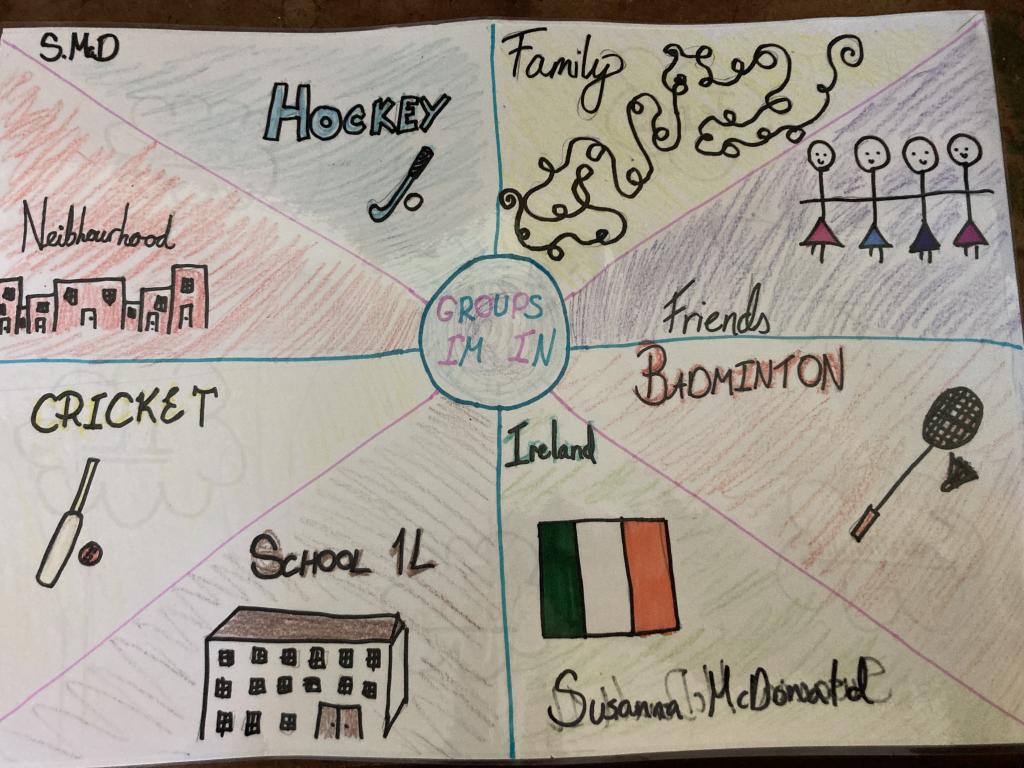 S.McD
HOCKEY
Family
Neibhourhood
GROUPS
IM IN
Friends
CRICKET
BADMINTON
Ireland
SCHOOL 1L
Susanna McDonald